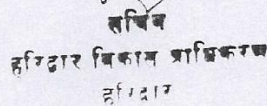 सचिव
हरिद्वार विकास प्राधिकरण
हरिद्वार